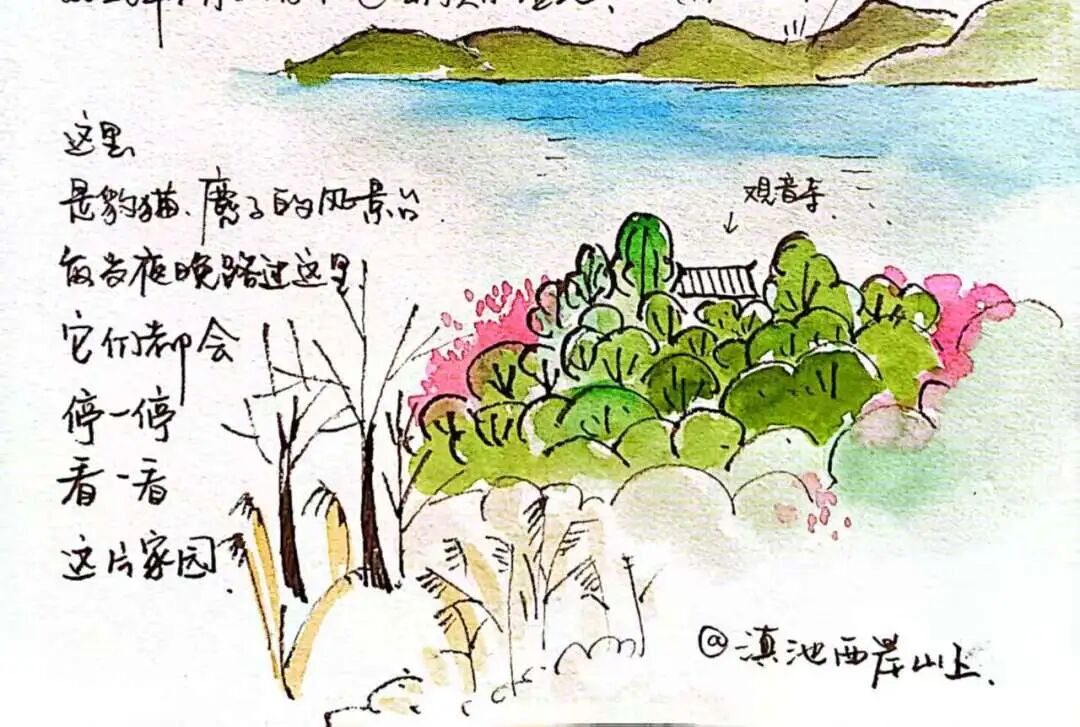 这里
是豹猫、麂子的风景台
每当夜晚路过这里
它们都会
停一停
看一看
这片家园.
观音
@滇池西岸山上.